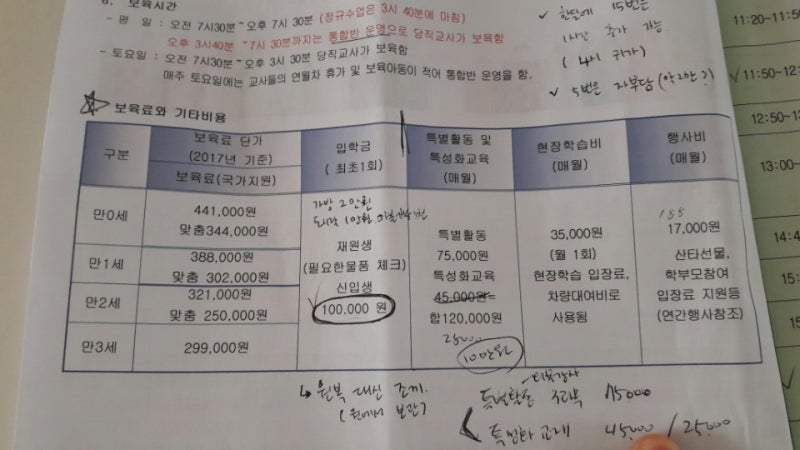 8. 보육시간
- 평 일 : 오전 7시30분~오후 7시 30분 (정규수업은 3시 40분에 마침)
오후 3시40분 ~7시 30분까지는 통합반 운영으로 당직교사가 보육함
- 토요일 : 오전 7시30분~오후 3시 30분 당직교사가 보육함
매주 토요일에는 교사들의 연월차 휴가 및 보육아동이 적어 통합반 운영을 함.
한달에 15번은
1시간 추가 가능
(4시 귀가)
5번은 자부담 (약2만?)
11:20~11:50
11:50~12
12:50~13
13:00~
14:4
15
보육료와 기타비용
구분
보육료 단가
(2017년 기준)
보육료(국가지원)
입학금
( 최초1회)
특별활동 및
특성화교육
(매월)
현장학습비
(매월)
행사비
(매월)
만0세
441,000원
맞춤344,000원
만1세
388,000원
맞춤 302,000원
만2세
321,000원
맞춤 250,000원
만3세
299,000원
가방 2만원
재원생
(필요한물품 체크)
신입생
100.000 원
특별활동
75,000원
특성화교육
45,000원=
합120,000원
25000
10만원
35,000원
(월 1회)
현장학습 입장료,
차량대여비로
사용됨
155
17,000원
산타선물,
학부모참여
입장료 지원등
(연간행사참조)
원복 대신 조끼.
(원에서 보관)
특별활동
75000
특성화 교재 45000 / 25000